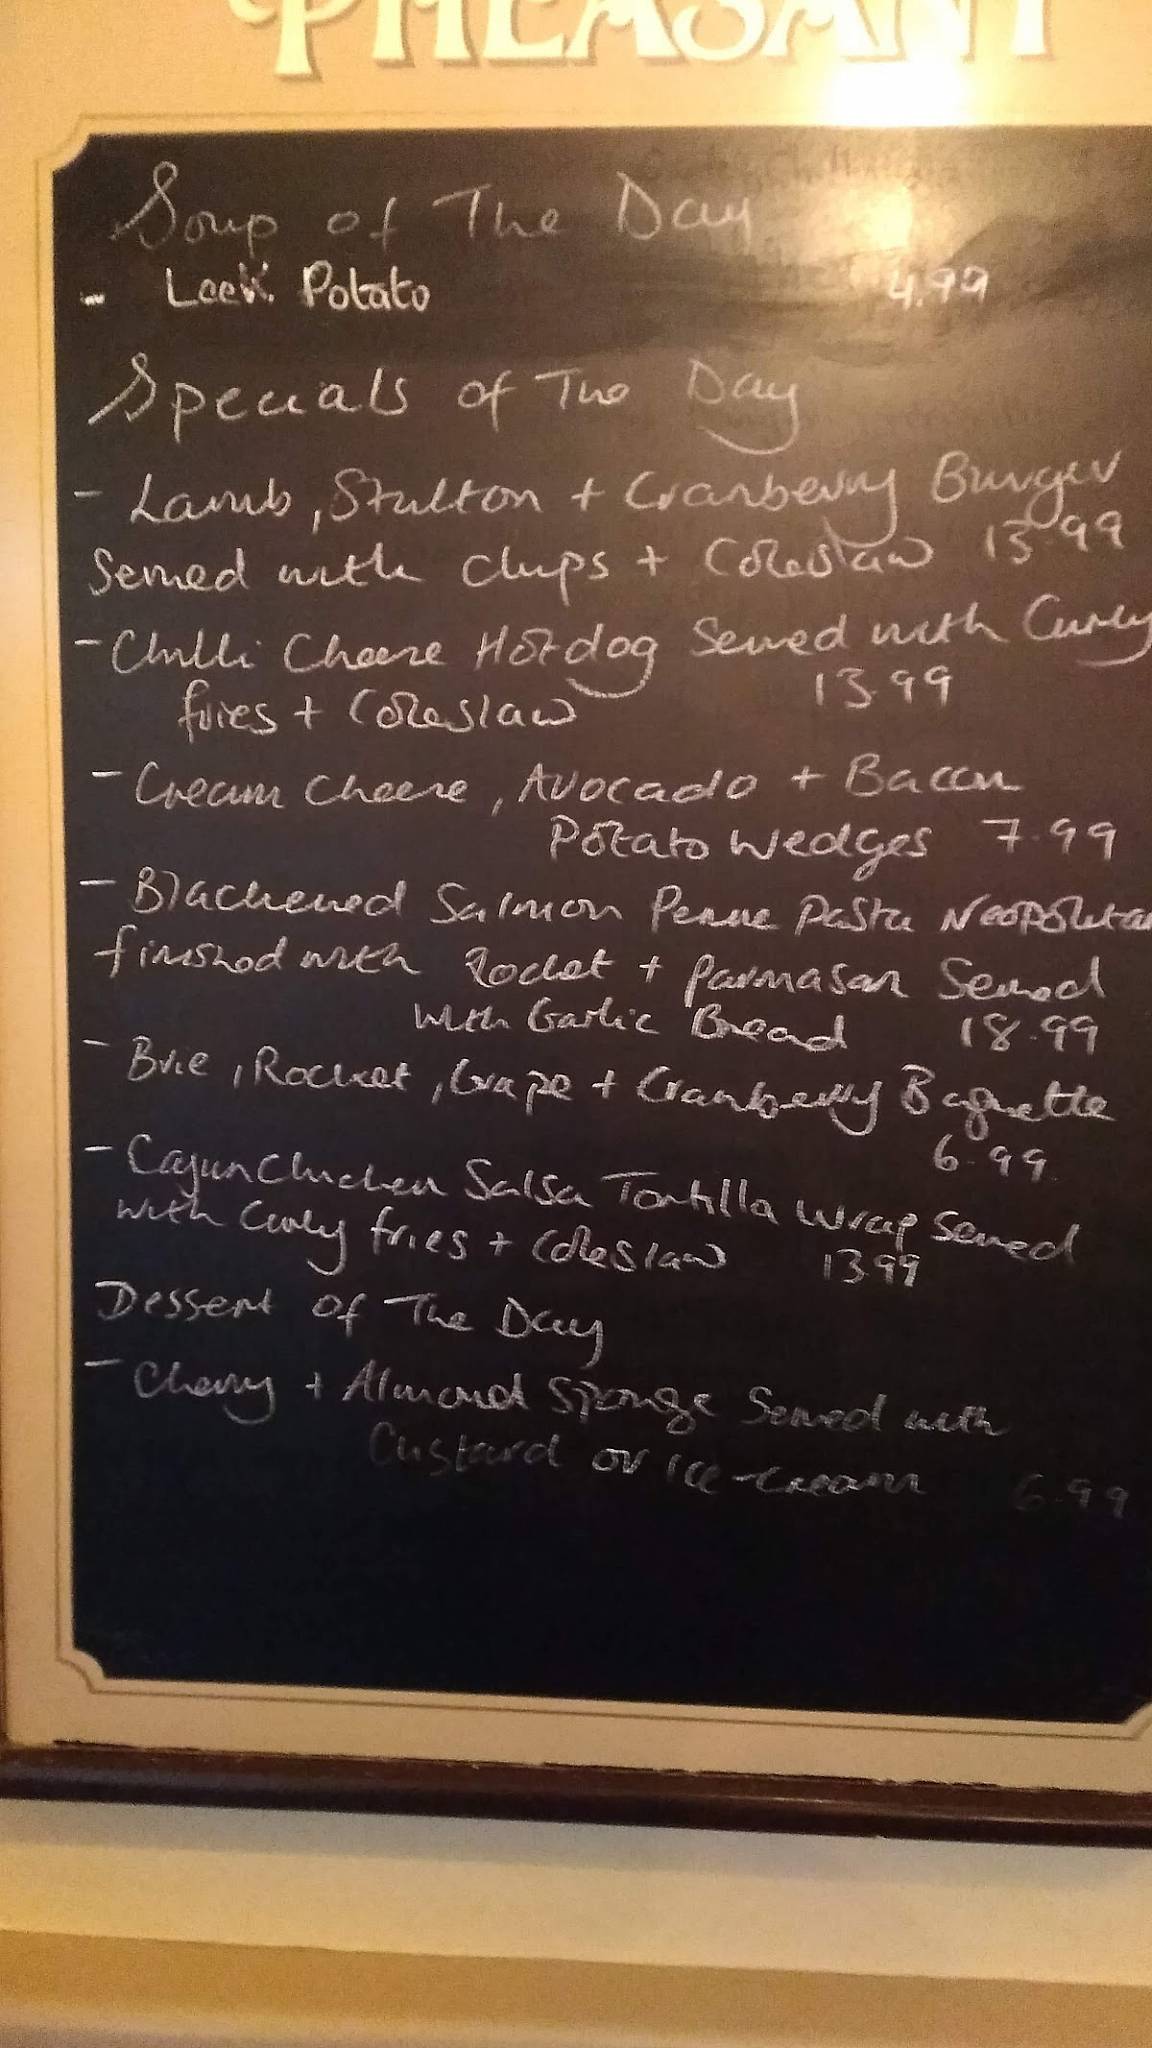 PHEASANT
Soup of The Day
- Leek Potato 4.99
Specials of The Day
- Lamb, Stilton + Cranberry Burger
Served with chips + Coleslaw 13.99
- Chilli Cheese Hotdog Served with Curly
fries + Coleslaw 13.99
- Cream Cheese, Avocado + Bacon
Potato Wedges 7.99
- Blackened Salmon Penne Pasta Neopolitan
finished with Rocket + Parmasan Served
with Garlic Bread 18.99
- Brie, Rocket, Grape + Cranberry Baguette
6.99
- Cajun Chicken Salsa Tortilla Wrap Served
with Curly fries + Coleslaw 13.99
Dessert of The Day
- Cherry + Almond Sponge Served with
Custard or Ice-cream 6.99